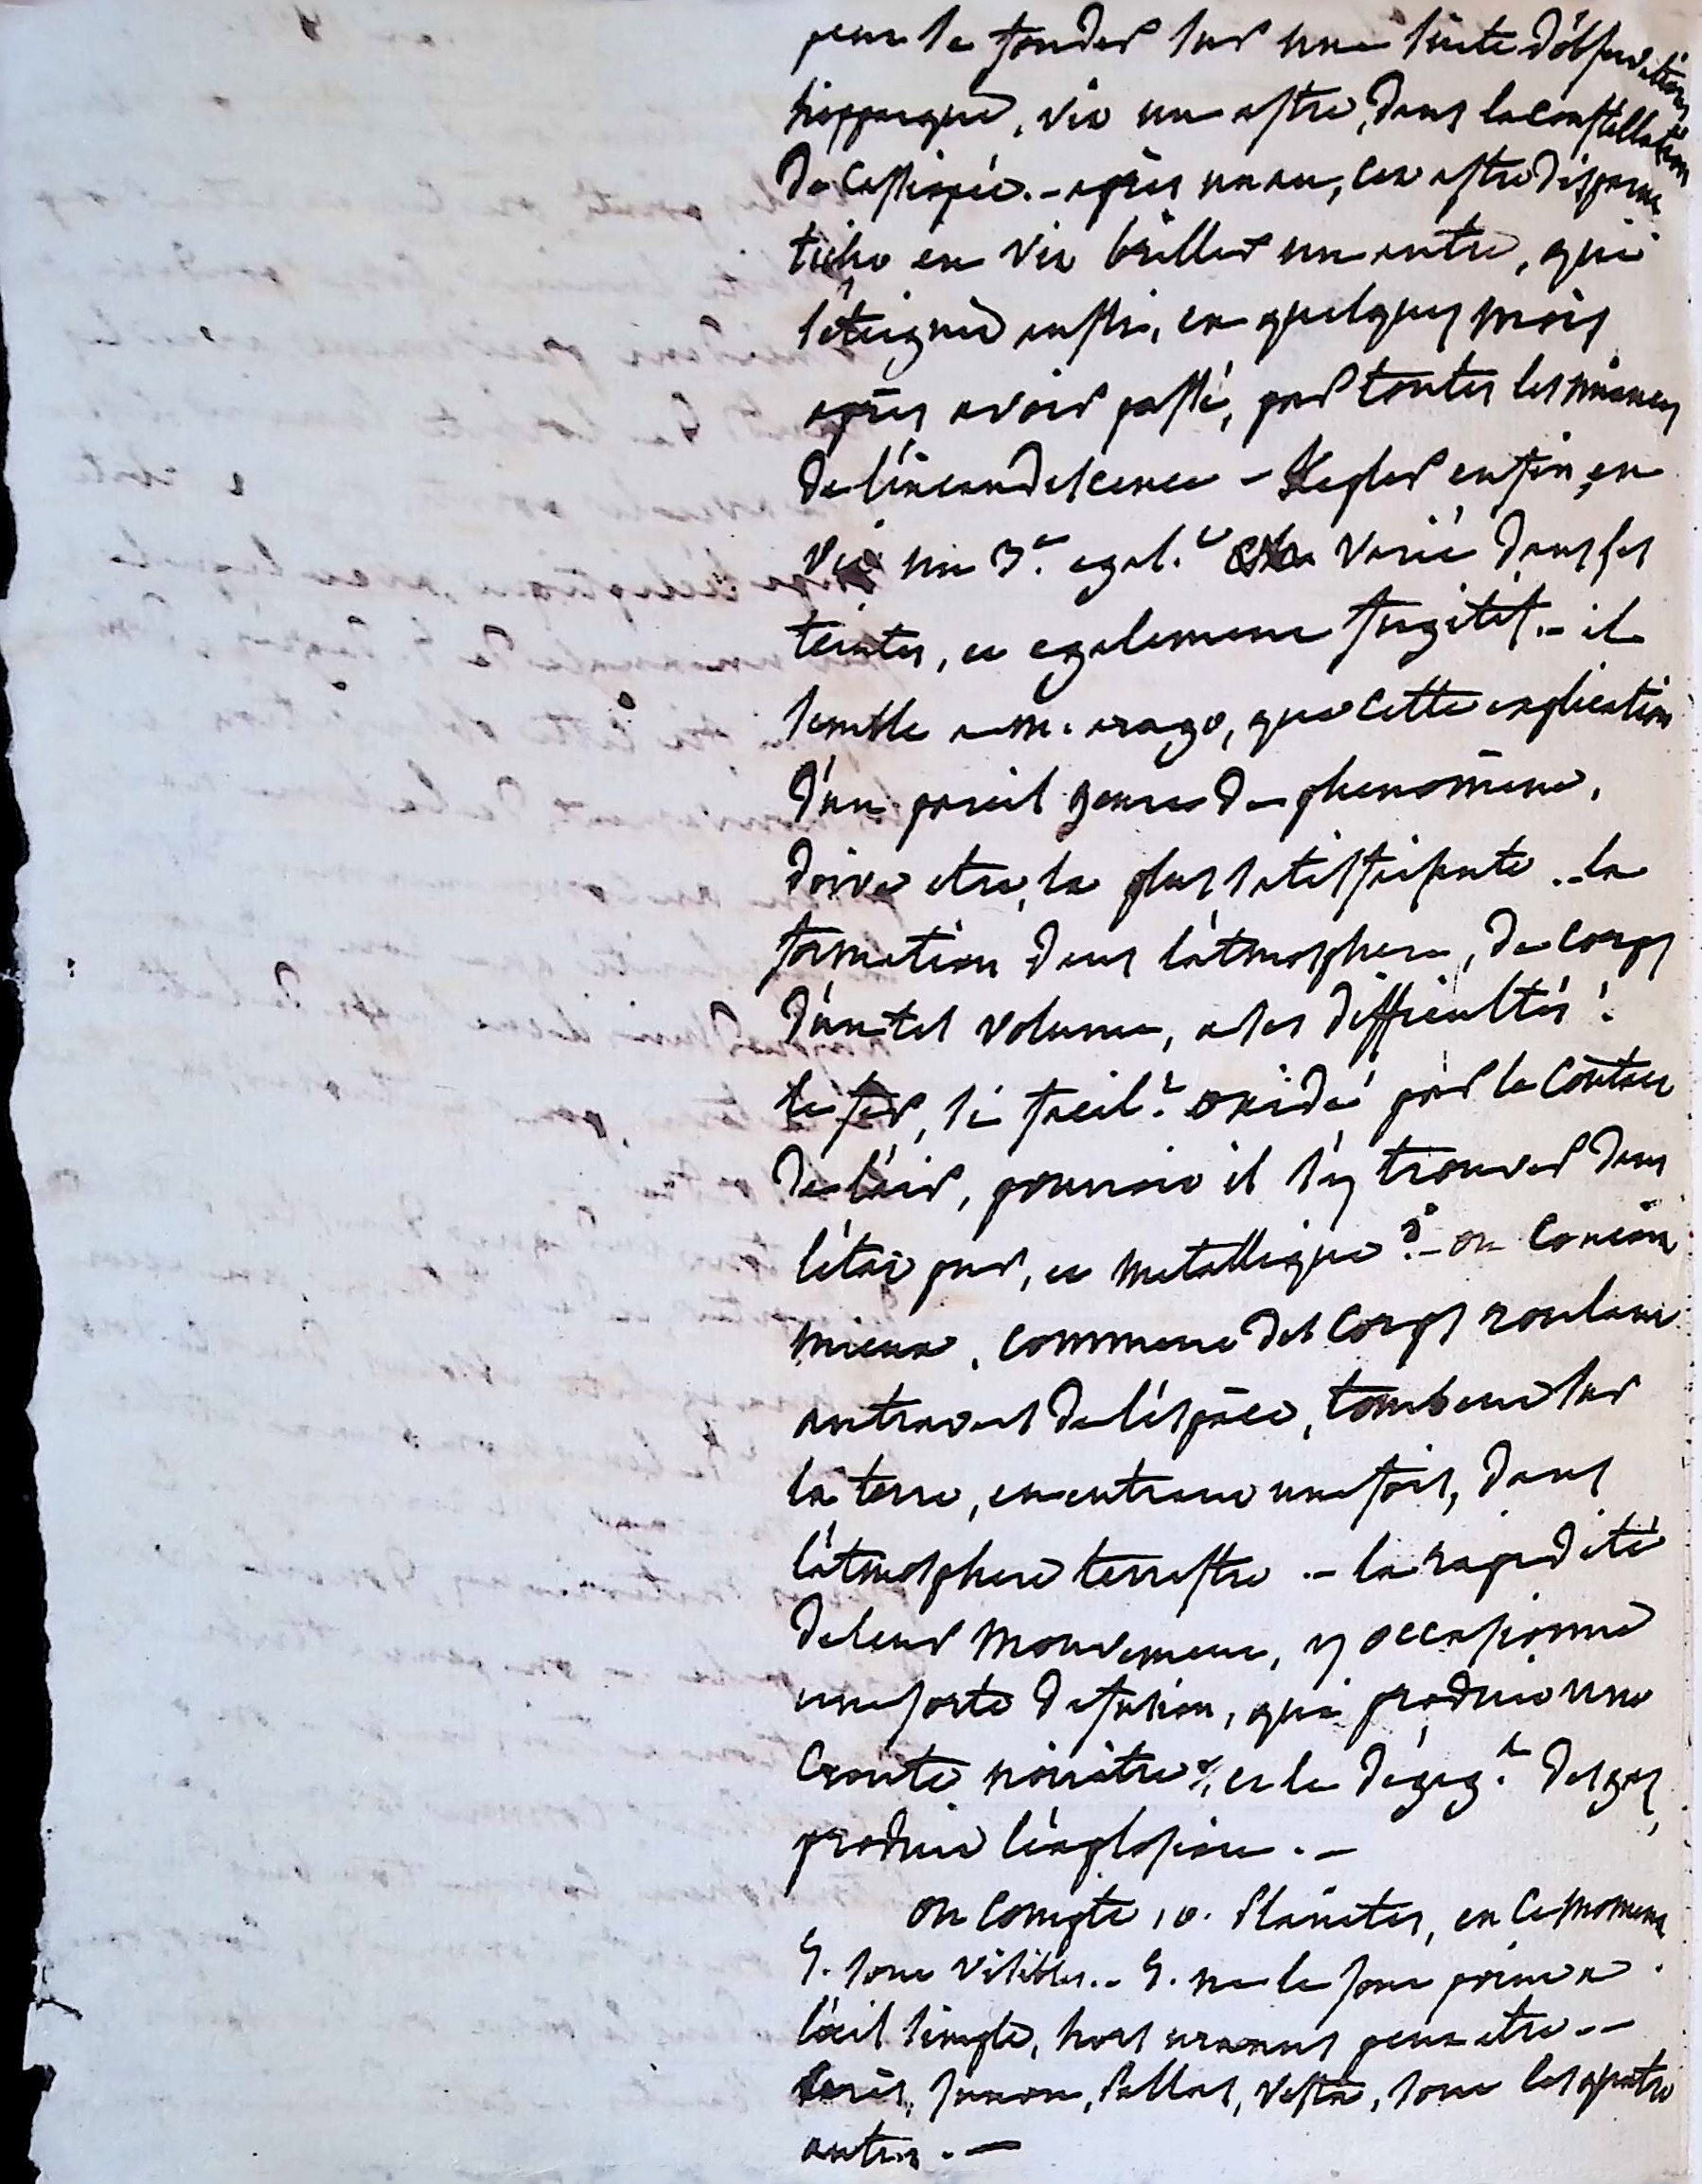 peut se fonder sur une suite d'observations
hipparque, vit un astre, dans la constellation
de Cassiopée. - après un an, cet astre disparut
ticho en vit briller un autre, qui
s'éteignit aussi, en quelques mois
après avoir passé, par toutes les nuances
de l'incandescence - Kepler enfin, en
vit un 3.e egal.t varié dans ses
teintes, et egalement fugitif. - il
semble a m. arago, que cette explication
d'un pareil genre de phenomène,
doive etre, la plus satisfaisante .. la
formation dans l'atmosphere, de corps
d'un tel volume, a ses difficultés !
le fer, si facil.t oxidé par le contact
de l'air, pourroit il s'y trouver dans
l'état pur, et metallique ? - on concoit
mieux, comment des corps roulant
au travers de l'éspace, tombent sur
la terre, en entrant une fois, dans
l'atmosphere terrestre .- la rapidité
de leur mouvement, y occasionne
une sorte de fusion, qui produit une
croute noirâtre, et le dégag.t des gaz,
produit l'explosion . -
on compte 10. Planètes, en ce moment
5. sont visibles .. 5. ne le sont point a
l'œil simple, hors uranus peut etre . -
Cerès, Junon, Pallas, Vesta, sont les quatre
autres . -